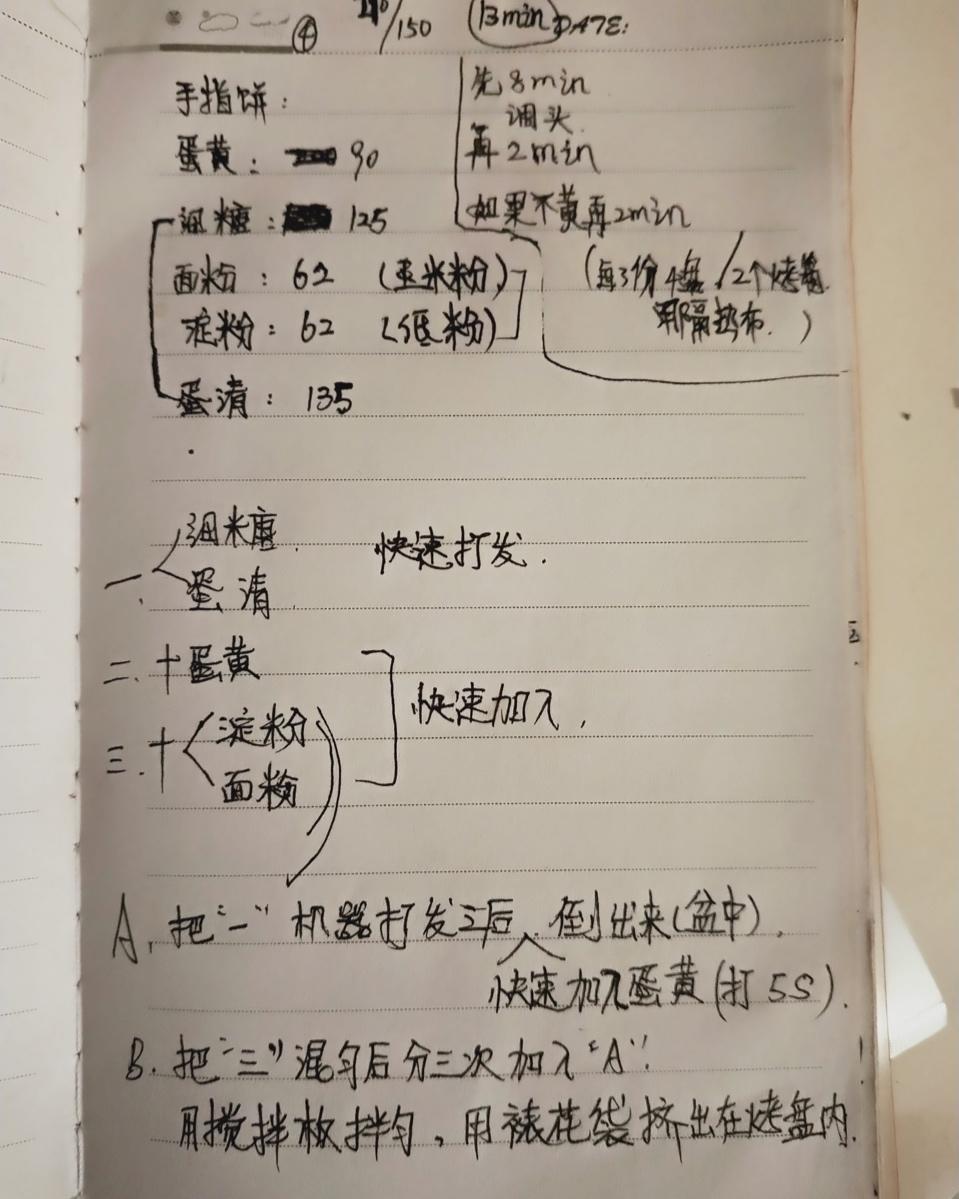 ④ 210/150 13min DATE:
手指饼：
先8min
调头
蛋黄： 90
再2min
细糖： 125
如果不黄再2min
面粉：62 （玉米粉）
（每3份4盘/2个烤盘
淀粉：62 （低粉）
用隔热布.）
蛋清：135
细米唐
一、 快速打发.
蛋清
二、十蛋黄
快速加入,
三.十 淀粉
面粉
A、把“一”机器打发之后、倒出来（盆中）.
快速加入蛋黄（打5S）.
B. 把“三”混匀后分三次加入“A”!
用搅拌板拌匀，用裱花袋挤出在烤盘内.